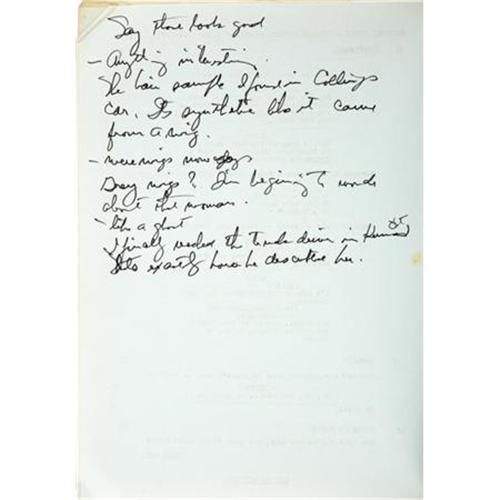 Say looks good
- Anything interesting.
The hair sample I found in Collings
car. Its synthetic like it came
from a wig.
- wigs
Gray wigs? I'm beginning to wonder
about that woman.
- like a ghost
I finally reached the truck driver in
Its exactly how he described her.